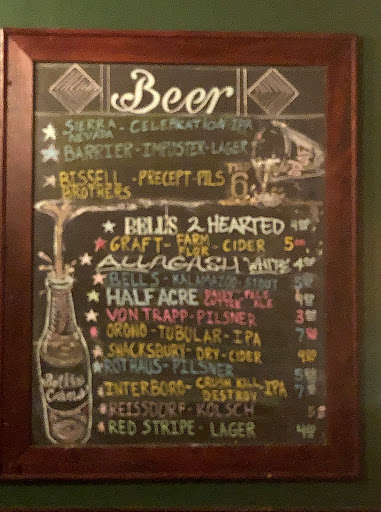 Beer
SIERRA NEVADA - CELEBRATION IPA
BARRIER - IMPOSTER - LAGER
BISSELL BROTHERS - PRECEPT - PILS
6
BELL'S 2 HEARTED
GRAFT - FARM FLOR - CIDER 5
ALLAGASH WHITE 4
BELLS - KALAMAZOO STOUT 5
HALF ACRE PALE ALE
VON TRAPP - PILSNER 3
ORONO - TUBULAR - IPA 7
SHACKSBURY - DRY - CIDER
ROTHAUS - PILSNER 5
INTERBORO - CRUSH KILL DESTROY IPA 7
REISSDORF - KOLSCH 5
RED STRIPE - LAGER 4
Bottles
Cans